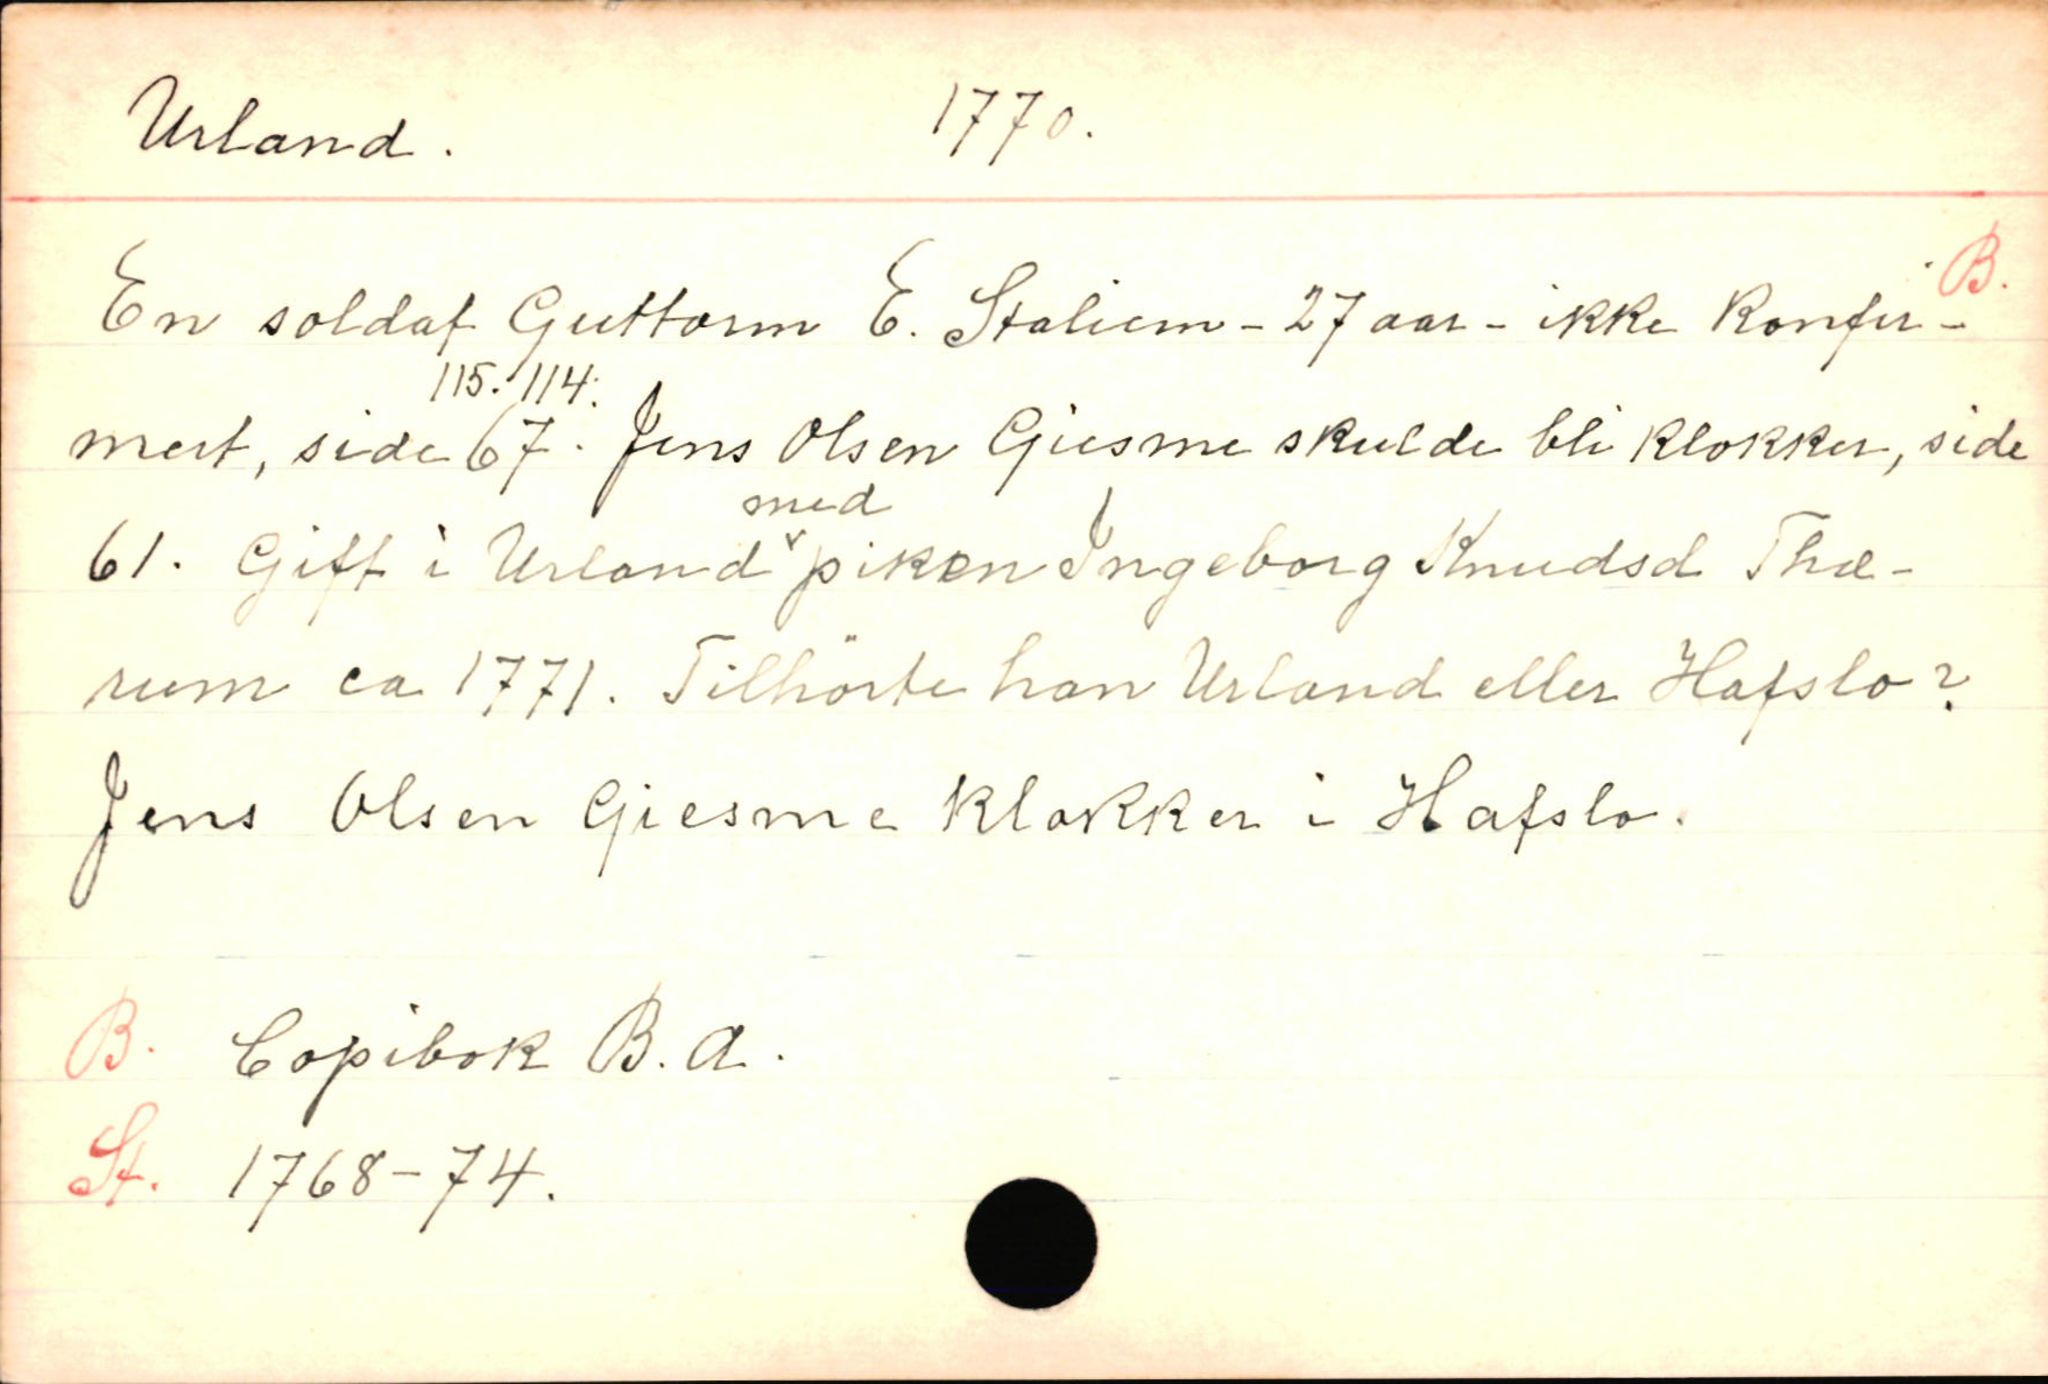 Urland. 1770.
B.
En soldat Guttorm E. Staliem - 27 aar - ikke konfir-
115. 114.
mert, side 67. Jens Olsen Giesme skulde bli klokker, side
med
61. Gift i Urland v piken Ingeborg Knudsd Thæ-
rum ca 1771. Tilhörte han Urland eller Hafslo?
Jens Olsen Giesme klokker i Hafslo.
B. Copibok B. A.
St. 1768-74.